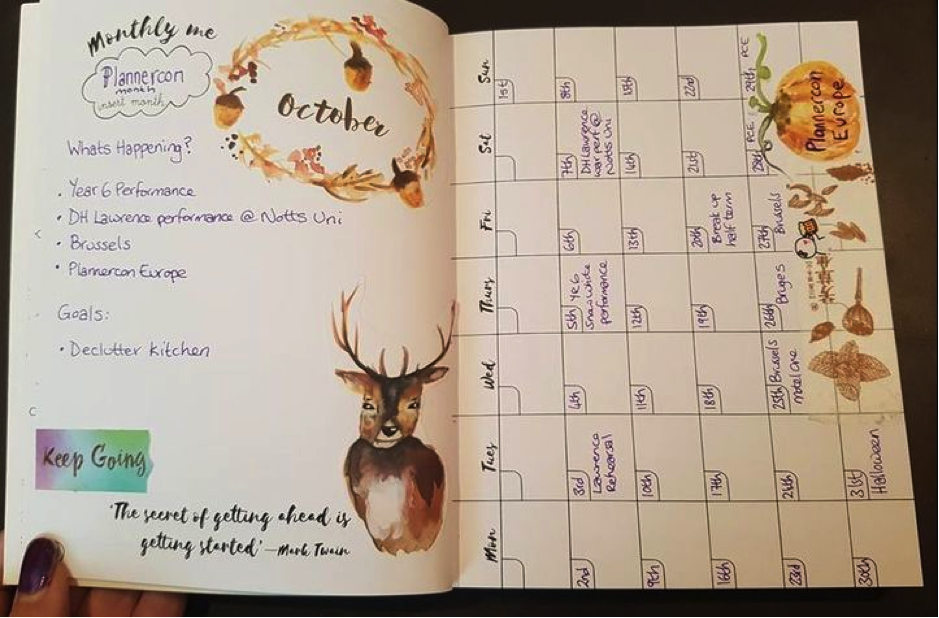 Monthly me
Plannercon
month
insert month
October
Whats Happening?
· Year 6 Performance
· DH Lawrence performance @ Notts Uni
· Brussels
· Plannercon Europe
Goals:
· Declutter Kitchen
Keep Going
'The secret of getting ahead is
getting started' —Mark Twain
Mon Tues Wed Thurs Fri Sat Sun
1st
2nd
3rd
Lawrence
Rehearsal
4th
5th Yr 6
Snow White
performance
6th
7th
DH Lawrence
war perf @
Notts Uni
8th
9th
10th
11th
12th
13th
14th
15th
16th
17th
18th
19th
20th
Break up
half term
21st
22nd
23rd
24th
25th Brussels
Motel One
26th Bruges
27th Brussels
28th PCE
29th PCE
Plannercon
Europe
30th
31st
Halloween